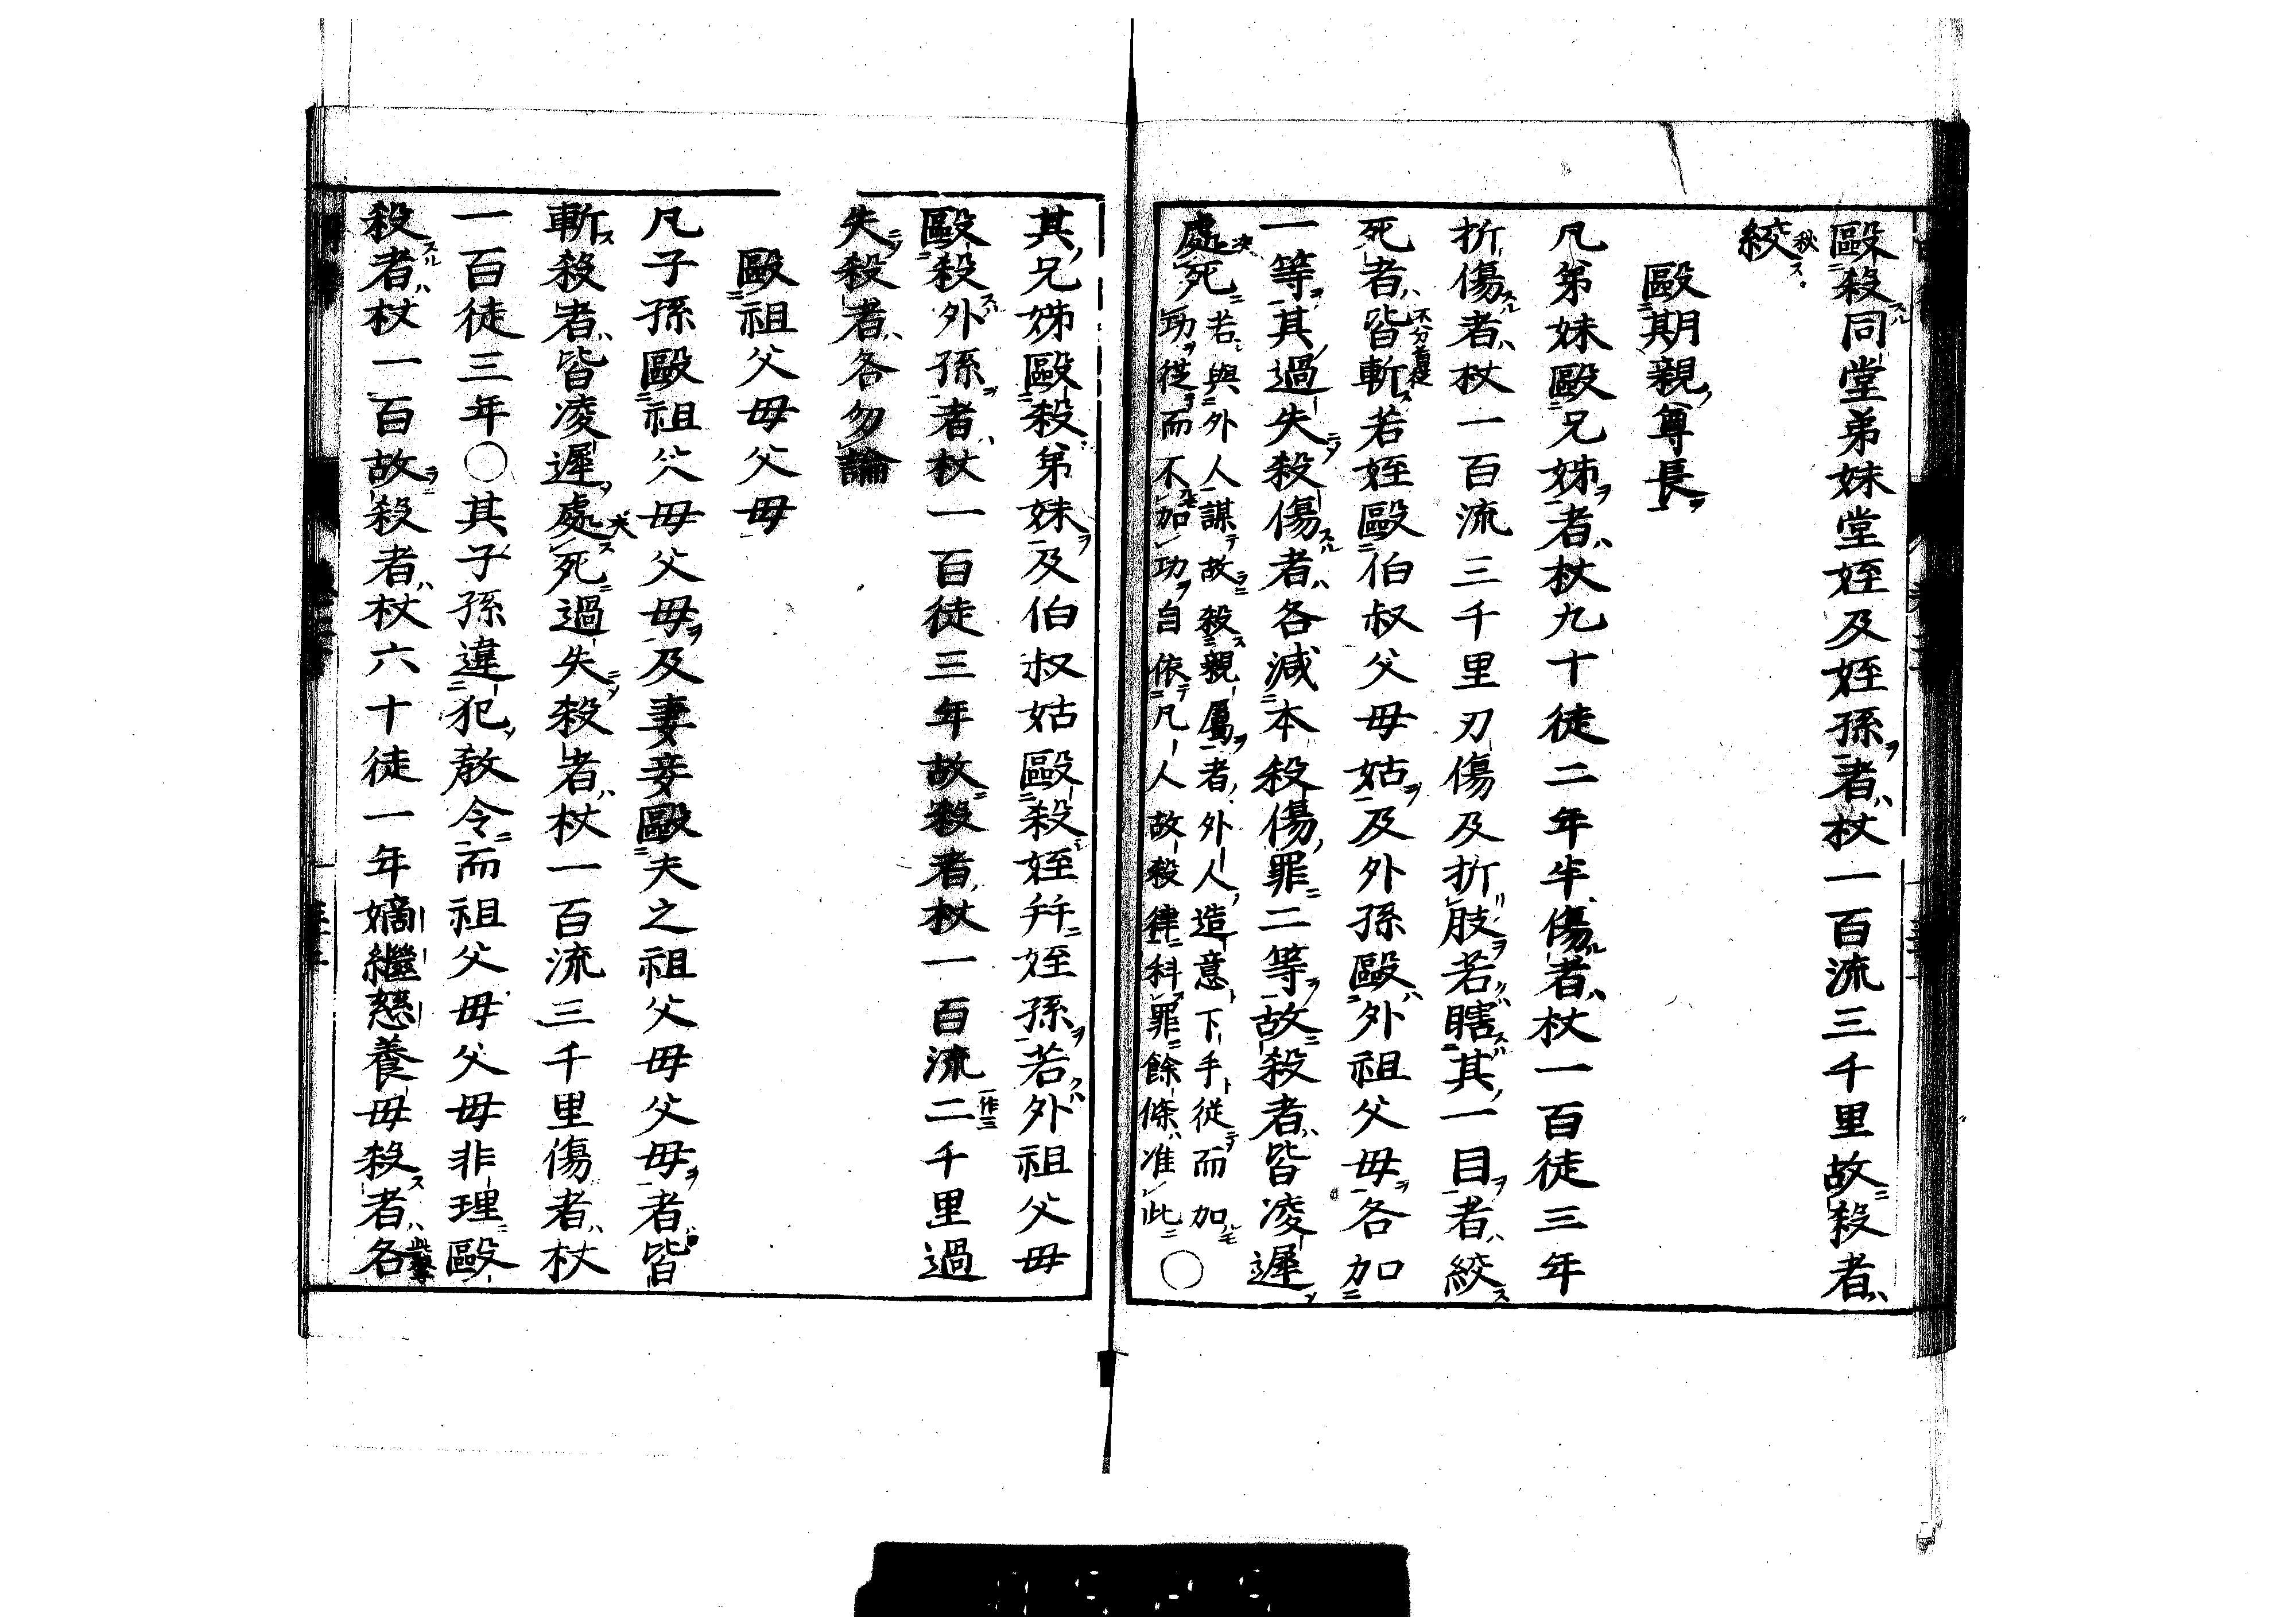 毆殺同堂弟妹堂姪及姪孫者杖一百流三千里故殺者
絞
毆期親尊長
凡弟妹毆兄姊者杖九十徒二年半傷者杖一百徒三年
折傷者杖一百流三千里刃傷及折肢若瞎其一目者絞
死者皆不分首從斬若姪毆伯叔父母姑及外孫毆外祖父母各加
一等其過失殺傷者各減本殺傷罪二等故殺者皆凌遲
處死若與外人謀故殺親屬者外人造意下手從而加
功從而不加功自依凡人故殺律科罪餘條准此○
其兄姊毆殺弟妹及伯叔姑毆殺姪幷姪孫若外祖父母
毆殺外孫者杖一百徒三年故殺者杖一百流二一作三千里過
失殺者各勿論
毆祖父母父母
凡子孫毆祖父母父母及妻妾毆夫之祖父母父母者皆
斬殺者皆凌遲處死過失殺者杖一百流三千里傷者杖
一百徒三年○其子孫違犯敎令而祖父母父母非理毆
殺者杖一百故殺者杖六十徒一年嫡繼慈養母殺者各